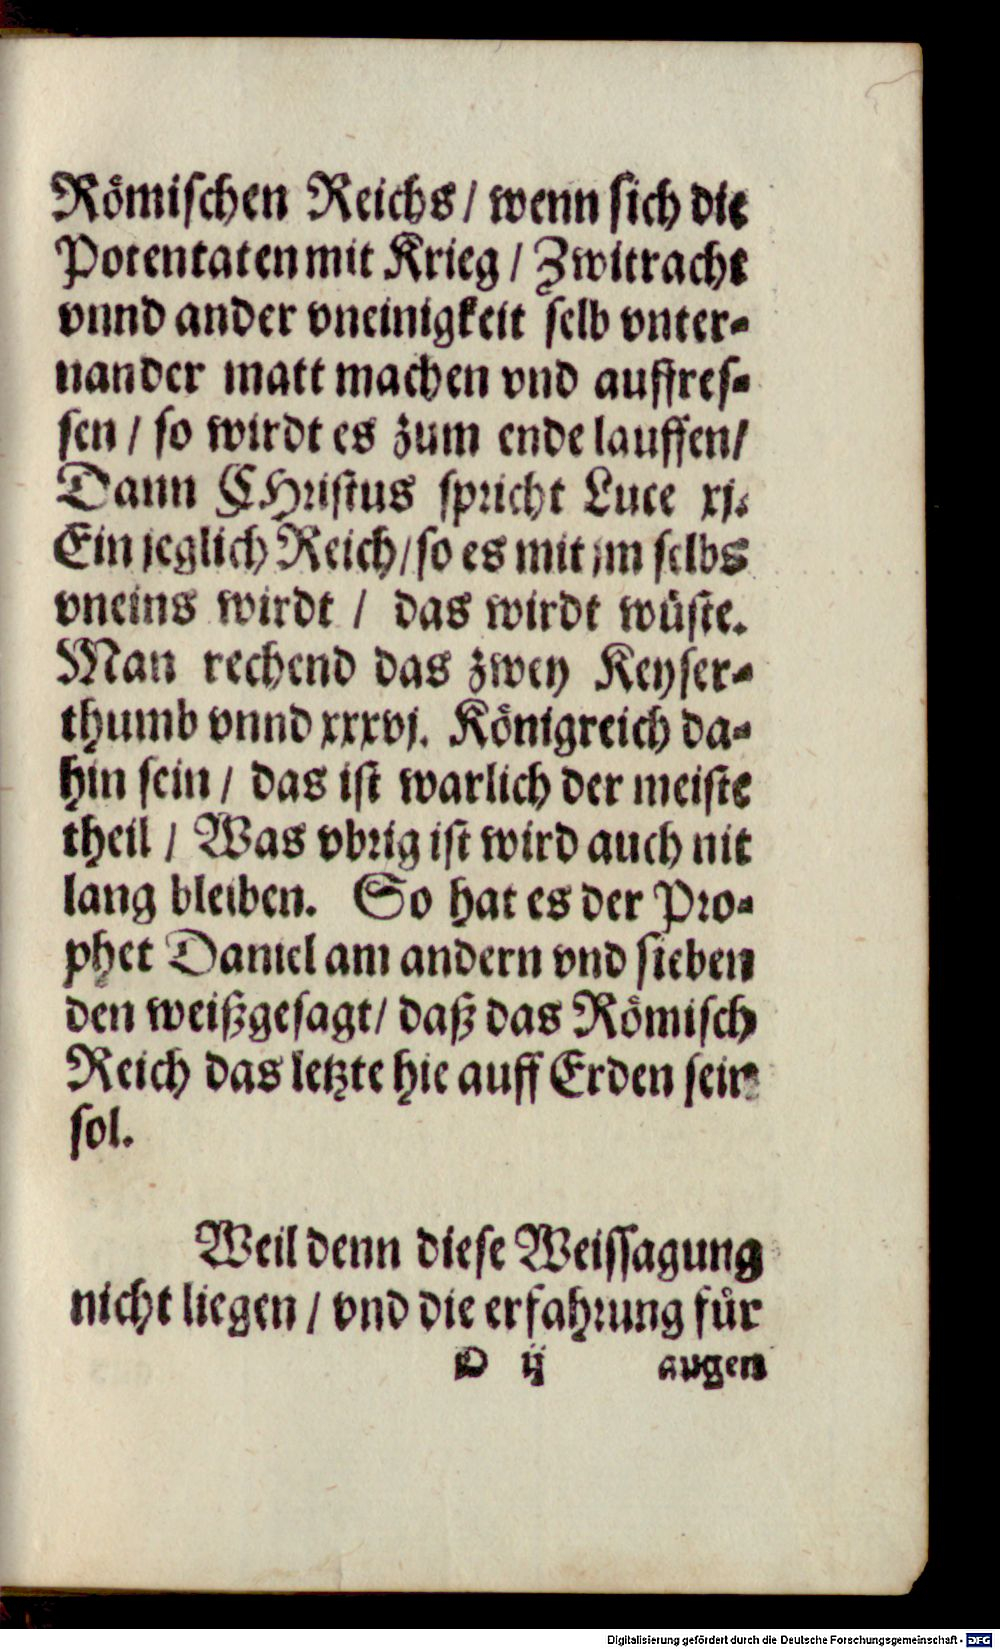 Römischen Reichs / wenn sich die
Potentaten mit Krieg / Zwitracht
vnnd ander vneinigkeit selb vnter-
nander matt machen vnd auffres-
sen / so wirdt es zum ende lauffen/
Dann CHristus spricht Luce xj.
Ein jeglich Reich/ so es mit jm selbs
vneins wirdt / das wirdt wüste.
Man rechend das zwey Keyser-
thumb vnnd xxxvj. Königreich da-
hin sein / das ist warlich der meiste
theil / Was vbrig ist wird auch nit
lang bleiben. So hat es der Pro-
phet Daniel am andern vnd sieben
den weißgesagt/ daß das Römisch
Reich das letzte hie auff Erden sein
sol.
Weil denn diese Weissagung
nicht liegen / vnd die erfahrung für
D ij augen
Digitalisierung gefördert durch die Deutsche Forschungsgemeinschaft - DFG